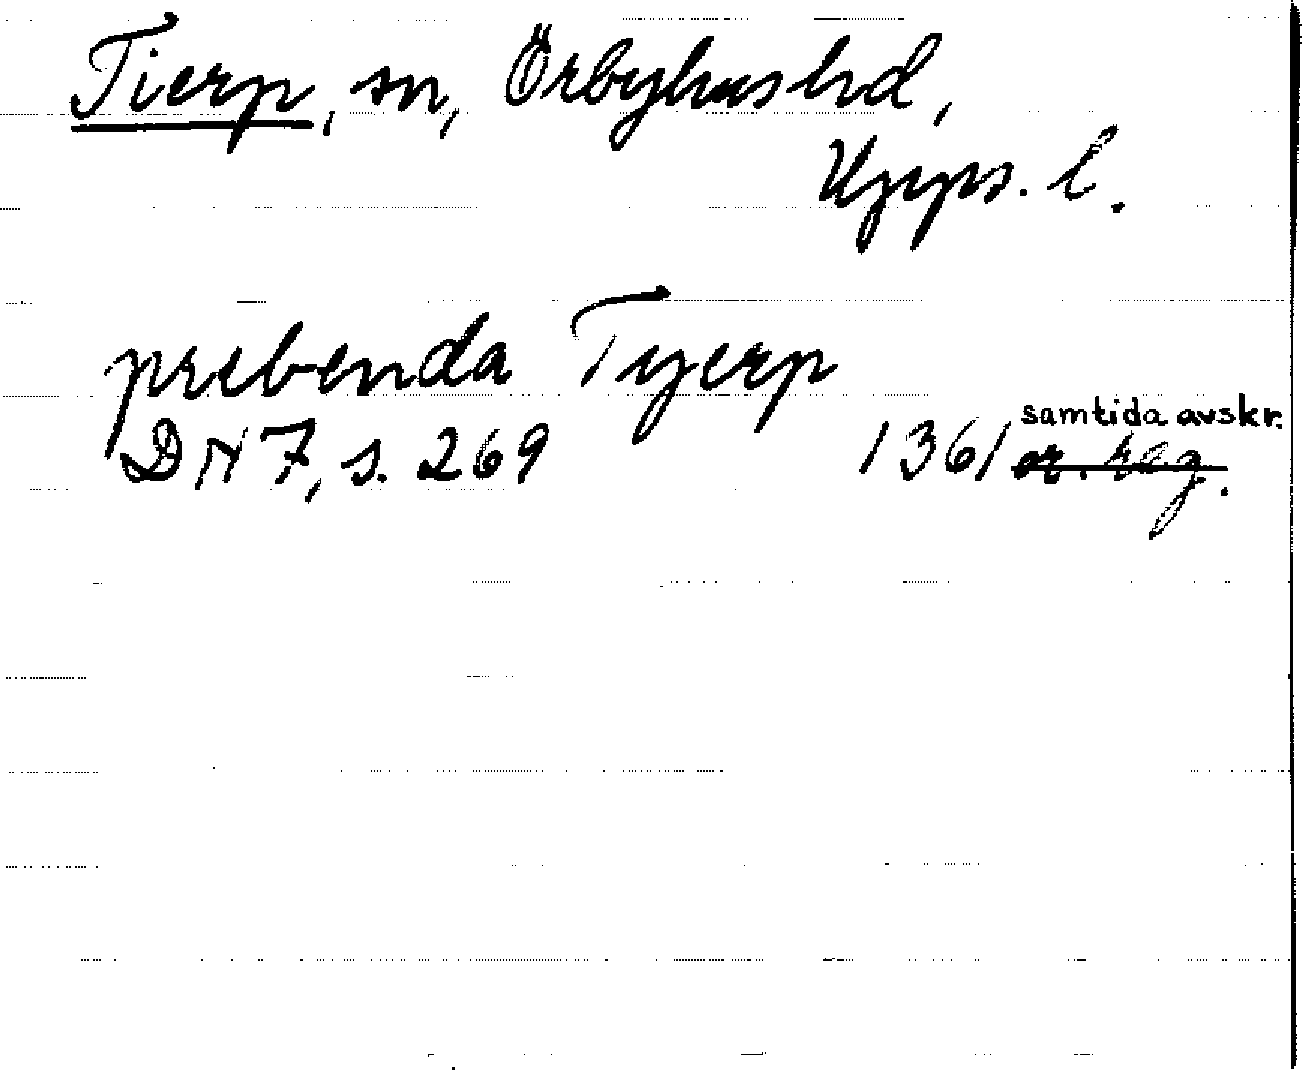 Tierp, sn, Örbyhus hd,
Upps. l.
prebenda Tyerp
samtida avskr.
DN 7, s. 269 1361 or. reg.